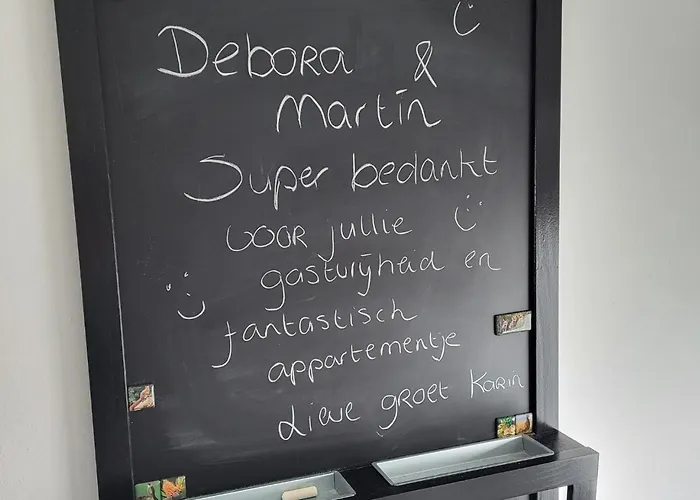 Debora &
Martin
Super bedankt
voor jullie
gastvrijheid en
fantastisch
appartementje
Lieve groet Karin